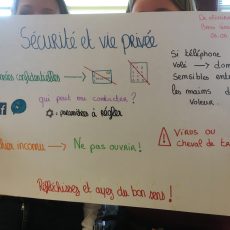 Sécurité et vie privée
confidentielles
qui peut me contacter ?
: paramètres à régler
inconnu → Ne pas ouvrir !
Si téléphone
Volé →
Sensibles
les mains
voleur.
Virus ou
cheval de
Réfléchissez et ayez du bon sens !